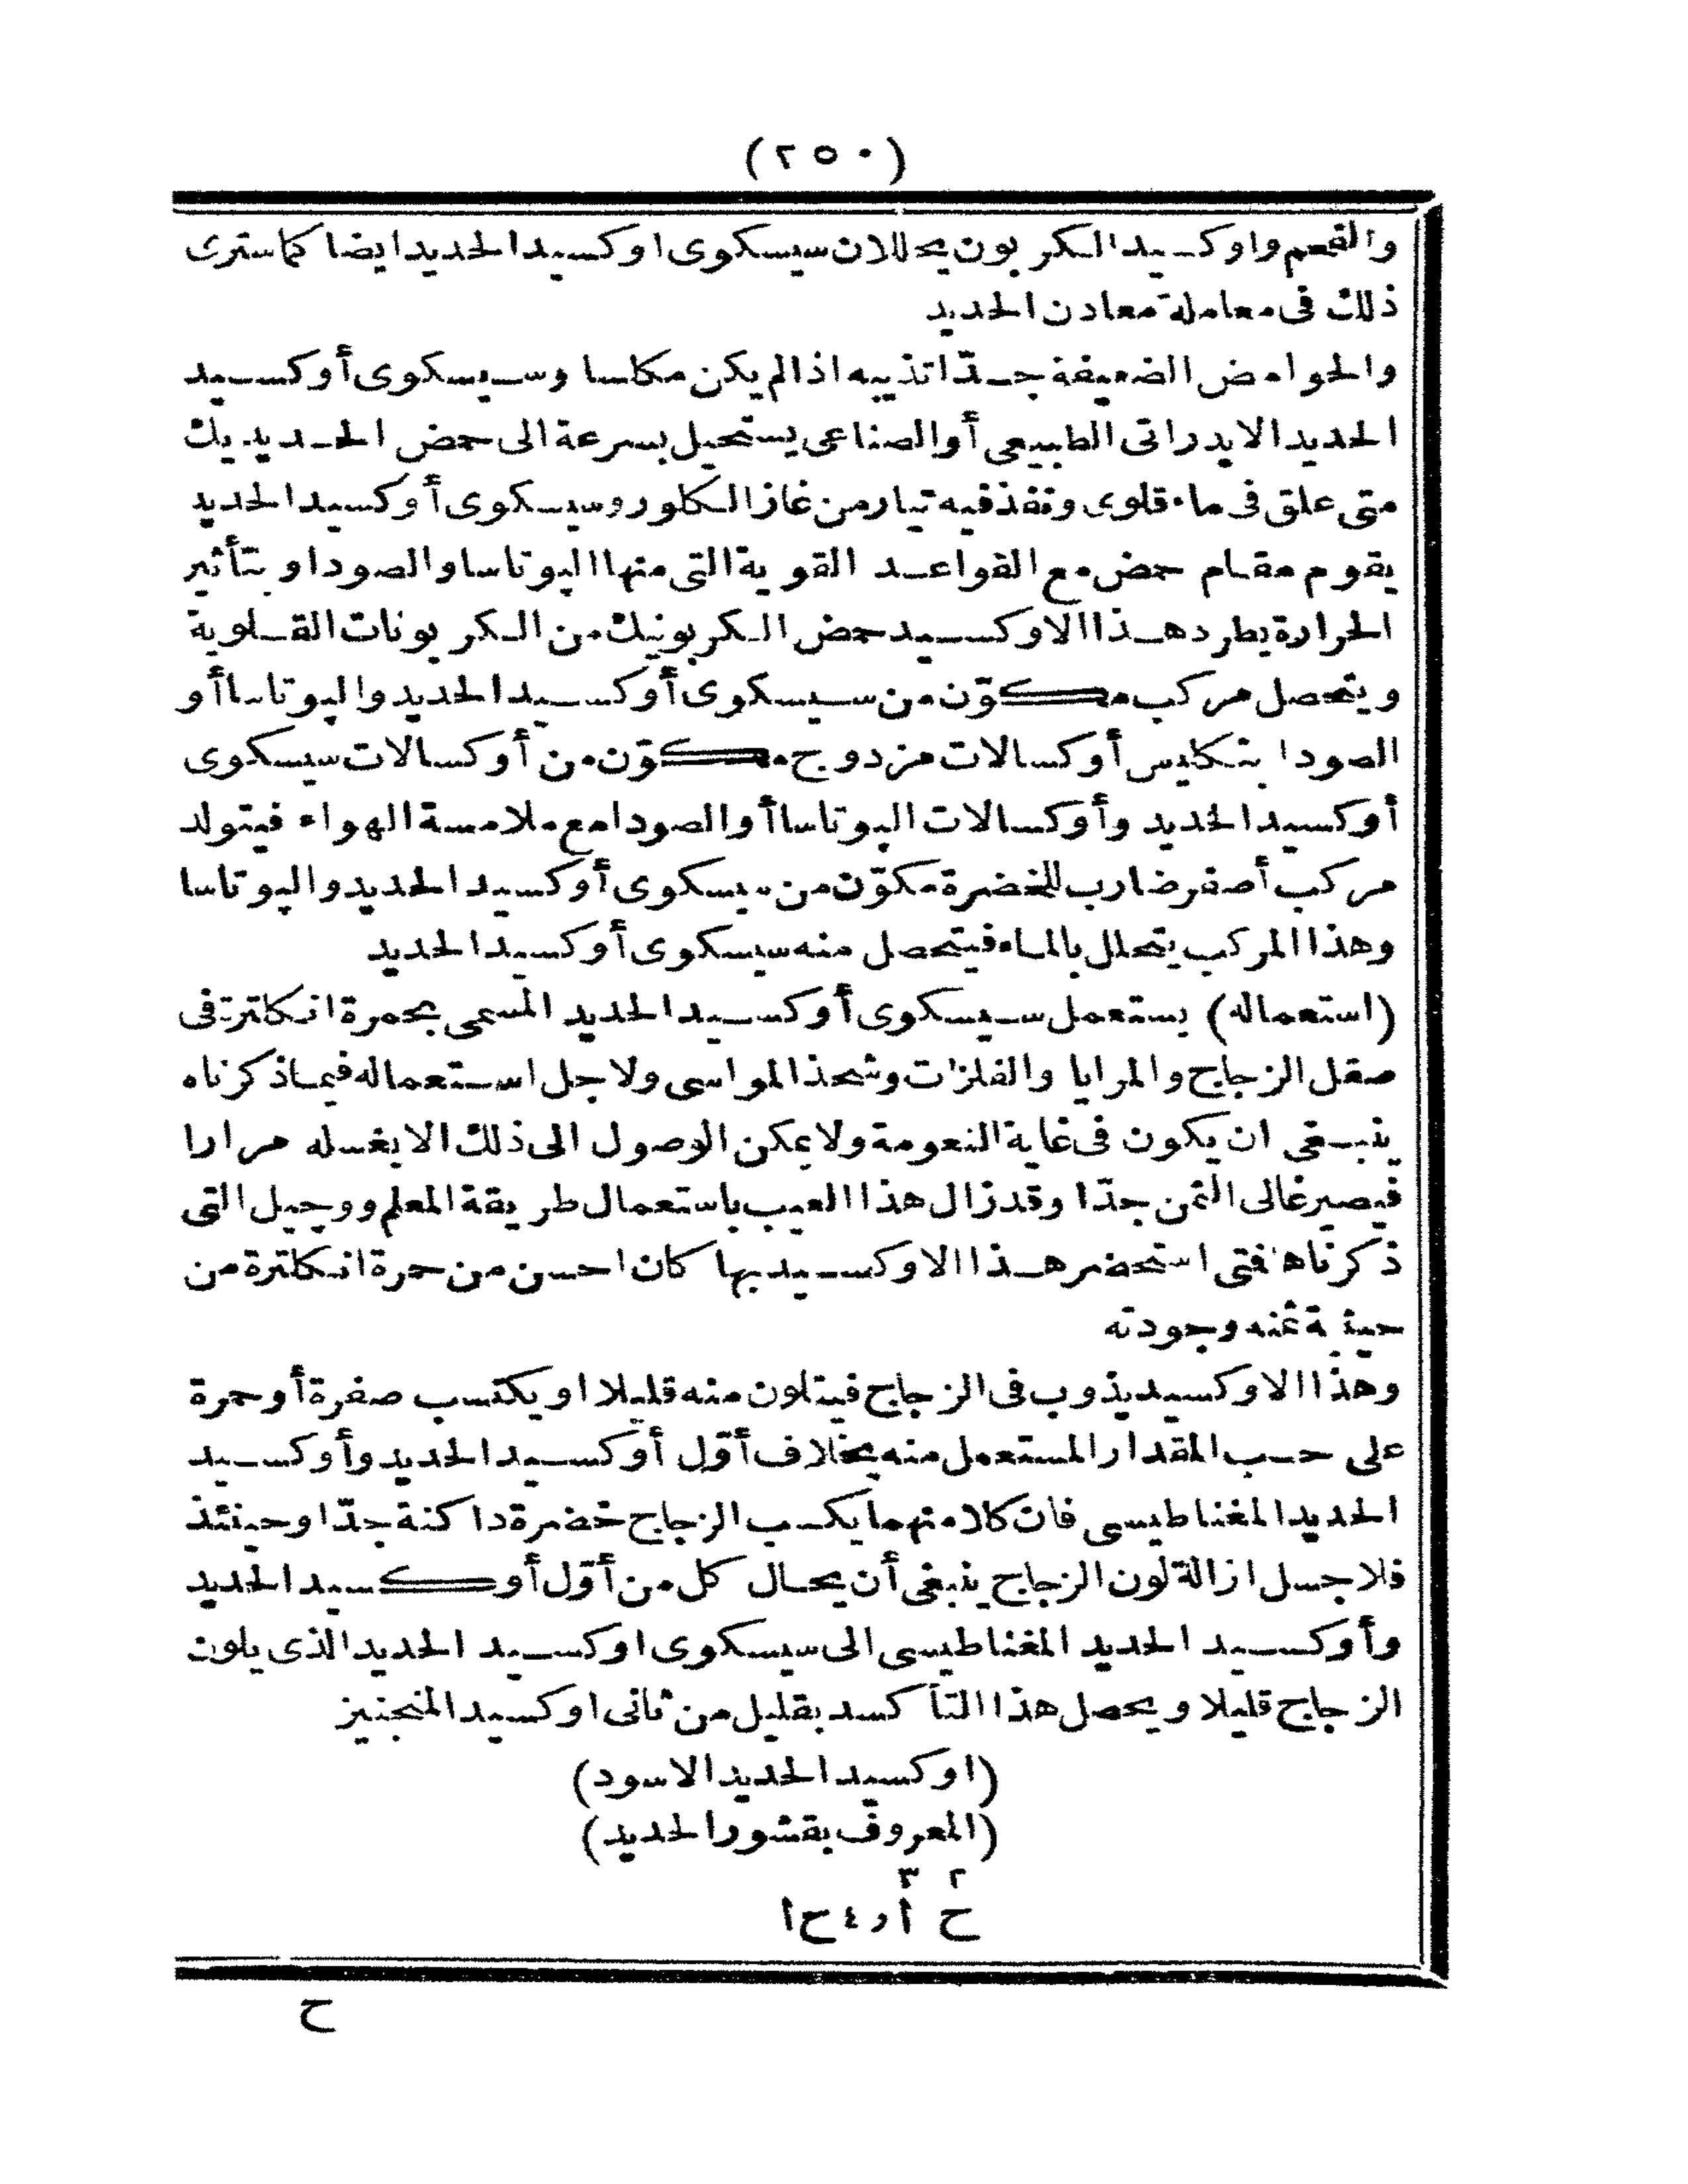 (٢٥٠)
والفحم واوكسيد الكربون يحللان سيسكوى اوكسيد الحديد ايضا كما سترى
ذلك فى معاملة معادن الحديد
والحوامض الضعيفة جدّا تذيبه اذا لم يكن مكلسا وسيسكوى أوكسيد
الحديد الايدراتى الطبيعى أو الصناعى يستحيل بسرعة الى حمض الحديديك
متى علق فى ماء قلوى ونفذ فيه تيار من غاز الكلور وسيسكوى أوكسيد الحديد
يقوم مقام حمض مع القواعد القوية التى منها البوتاسا والصودا وبتأثير
الحرارة يطرد هذا الاوكسيد حمض الكربونيك من الكربونات القلوية
ويتحصل مركب مكوّن من سيسكوى أوكسيد الحديد والپوتاسا أو
الصودا بتكليس أوكسالات مزدوج مكوّن من أوكسالات سيسكوى
أوكسيد الحديد وأوكسالات الپوتاسا أو الصودا مع ملامسة الهواء فيتولد
مركب أصفر ضارب للخضرة مكوّن من سيسكوى أوكسيد الحديد والپوتاسا
وهذا المركب يتحلل بالماء فيتحصل منه سيسكوى أوكسيد الحديد
(استعماله) يستعمل سيسكوى أوكسيد الحديد المسمى بحمرة انكلترة فى
صقل الزجاج والمرايا والفلزات وشحذ المواسى ولاجل استعماله فيما ذكرناه
ينبغى ان يكون فى غاية النعومة ولا يمكن الوصول الى ذلك الا بغسله مرارا
فيصير غالى الثمن جدّا وقد زال هذا العيب باستعمال طريقة المعلم ووجيل التى
ذكرناها فتى استحضر هذا الاوكسيد بها كان احسن من حمرة انكلترة من
حيثية ثمنه وجودته
وهذا الاوكسيد يذوب فى الزجاج فيتلون منه قليلا او يكتسب صفرة أو حمرة
على حسب المقدار المستعمل منه بخلاف أوّل أوكسيد الحديد وأوكسيد
الحديد المغناطيسى فان كلا منهما يكسب الزجاج خضرة داكنة جدّا وحينئذ
فلاجل ازالة لون الزجاج ينبغى أن يحال كل من أوّل أوكسيد الحديد
وأوكسيد الحديد المغناطيسى الى سيسكوى اوكسيد الحديد الذى يلون
الزجاج قليلا ويحصل هذا التأكسد بقليل من ثانى اوكسيد المنجنيز
(اوكسيد الحديد الاسود)
(المعروف بقشور الحديد)
٢ ٣
ح أ ر ٤ ح ا
ح